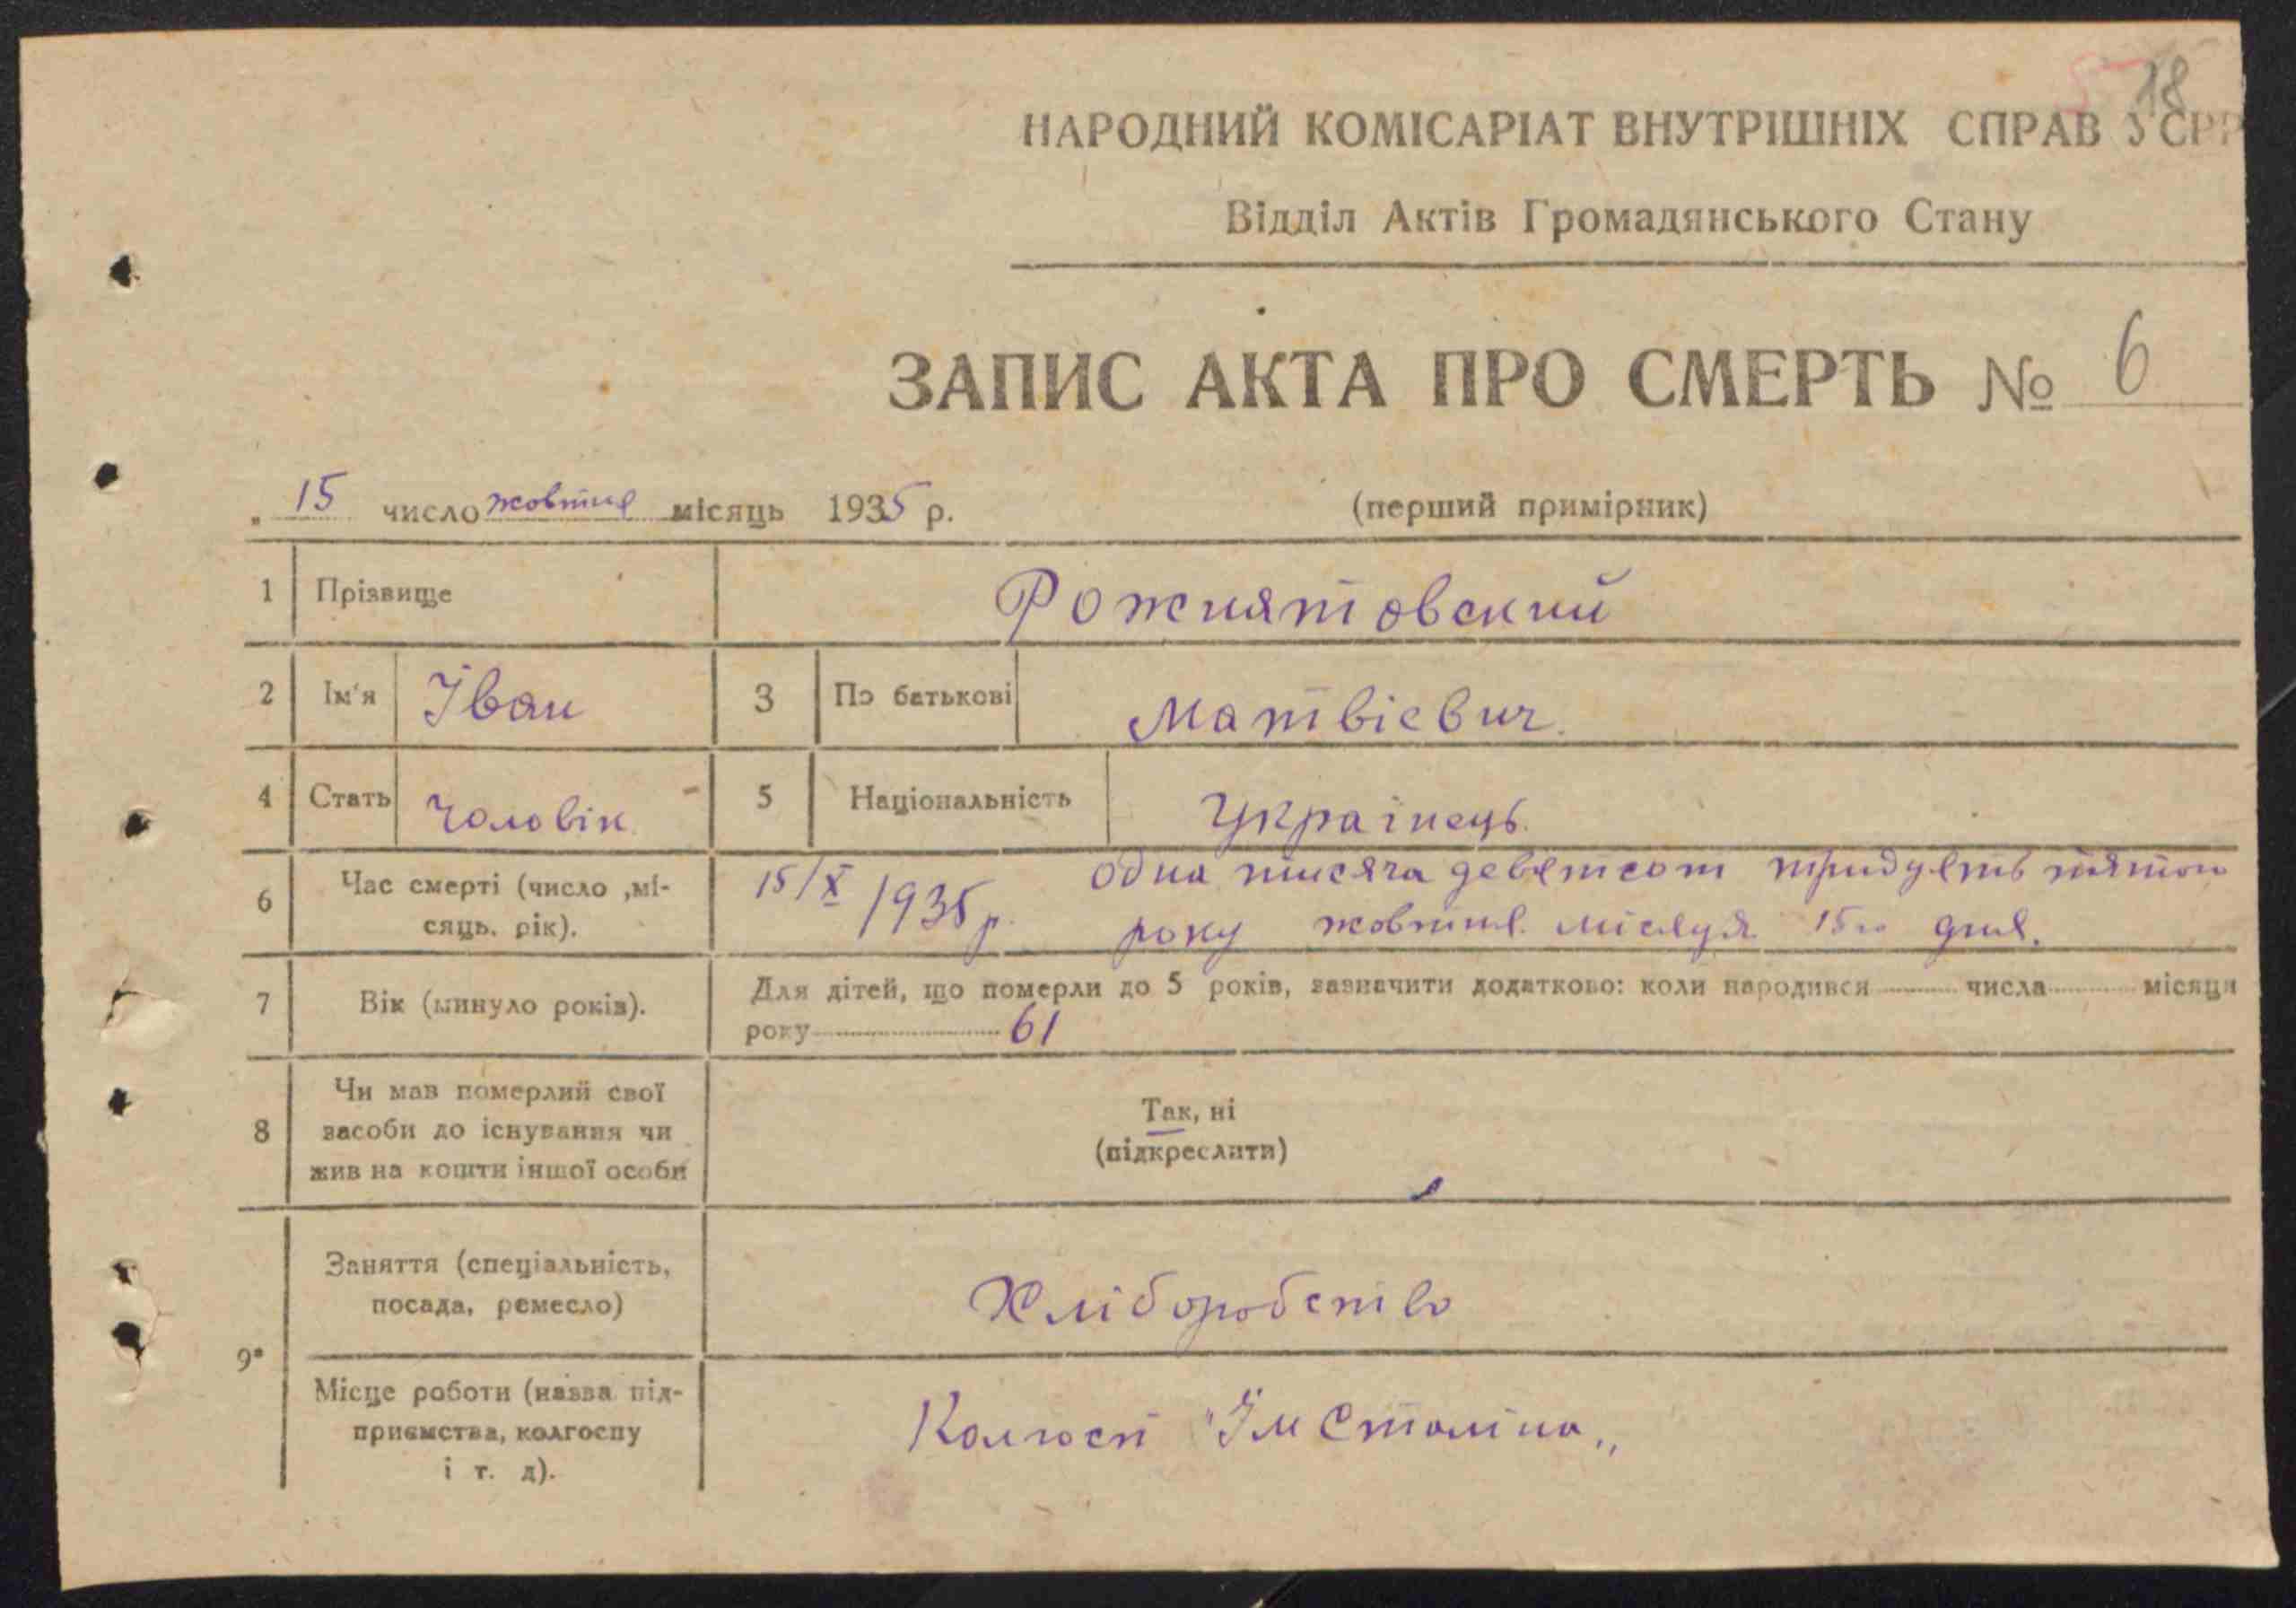 18
НАРОДНИЙ КОМІСАРІАТ ВНУТРІШНІХ СПРАВ УСРР
Відділ Актів Громадянського Стану
ЗАПИС АКТА ПРО СМЕРТЬ № 6
" 15 число жовтня місяць 1935 р. (перший примірник)
1 Прізвище Рожнятовский
2 Ім'я Іван 3 По батькові Матвієвич
4 Стать чоловік 5 Національність Українець
6 Час смерті (число ,мі-
сяць. рік).
15/X 1935 р. одна тисяча девятсот
року жовтня місяця 15го дня.
7 Вік (минуло років).
Для дітей, що померли до 5 років, зазначити додатково: коли народився числа місяця
року 61
8 Чи мав померлий свої
засоби до існування чи
жив на кошти іншої особи
Так, ні
(підкреслити)
9* Заняття (спеціальність,
посада, ремесло)
Хліборобство
Місце роботи (назва під-
приємства, колгоспу
і т. д).
Колгосп "Ім Сталіна„